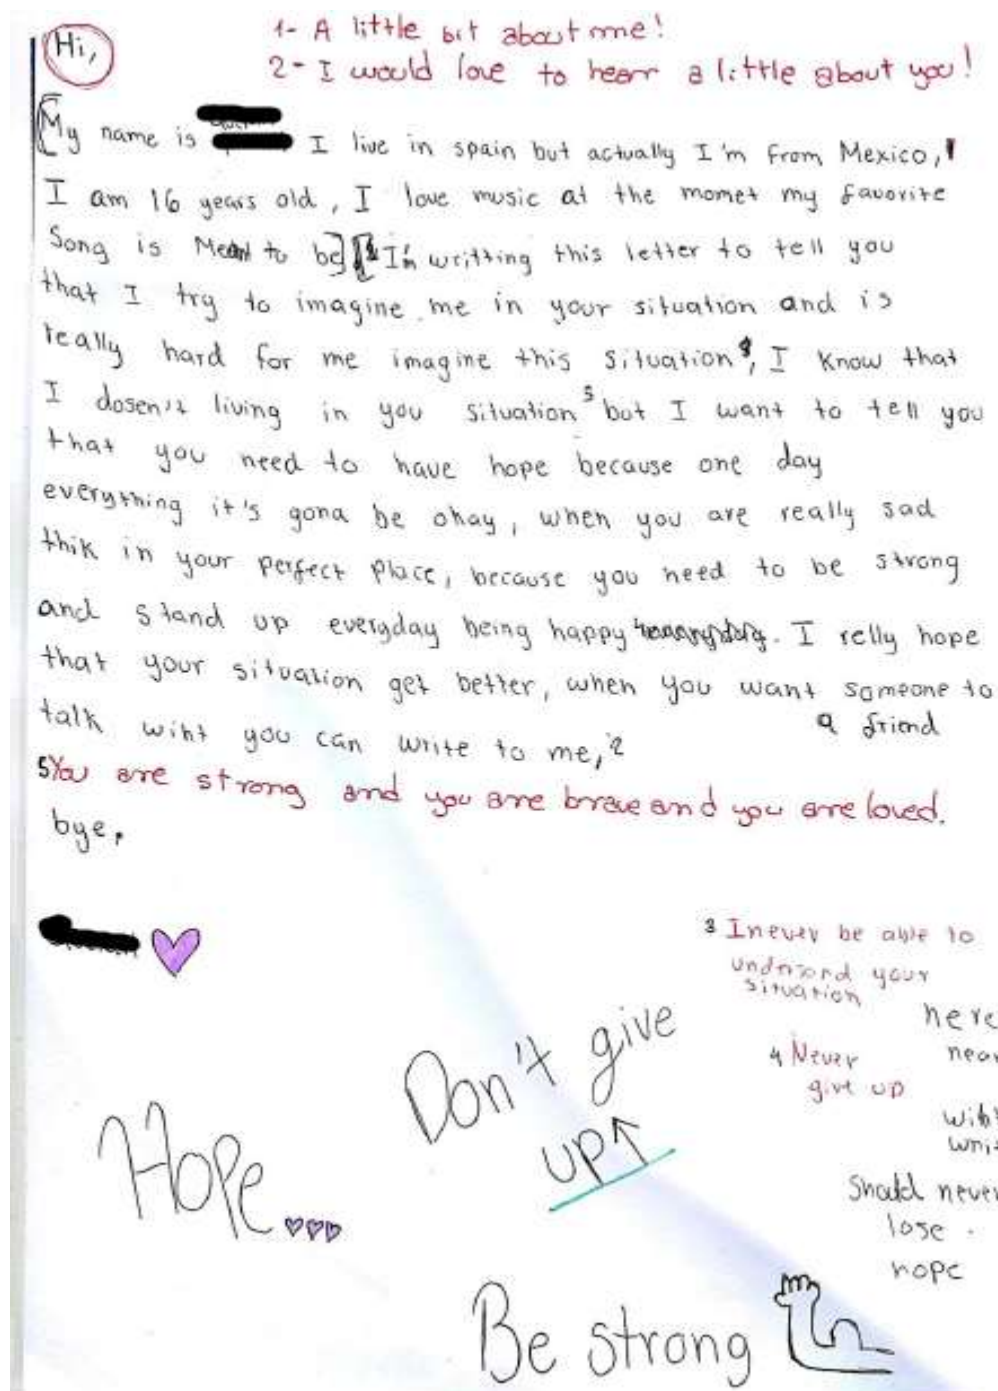 Hi,
1- A little bit about me!
2- I would love to hear a little about you!
My name is I live in spain but actually I'm From Mexico, 1
I am 16 years old, I love music at the momet my favorite
Song is Meant to be] [I'm writting this letter to tell you
that I try to imagine me in your situation and is
really hard for me imagine this situation, I know that
I dosen't living in you situation 3 but I want to tell you
that you need to have hope because one day
everything it's gona be okay, when you are really sad
thik in your perfect place, because you need to be strong
and stand up everyday being happy. I relly hope
that your situation get better, when you want someone to
talk wiht you can write to me, 2 a friend
5 You are strong and you are brave and you are loved.
bye,
3 I never be able to
your
situation
here
4 Never
give up
Don't give
up↑
Hope...
never
lose
hope
Be strong